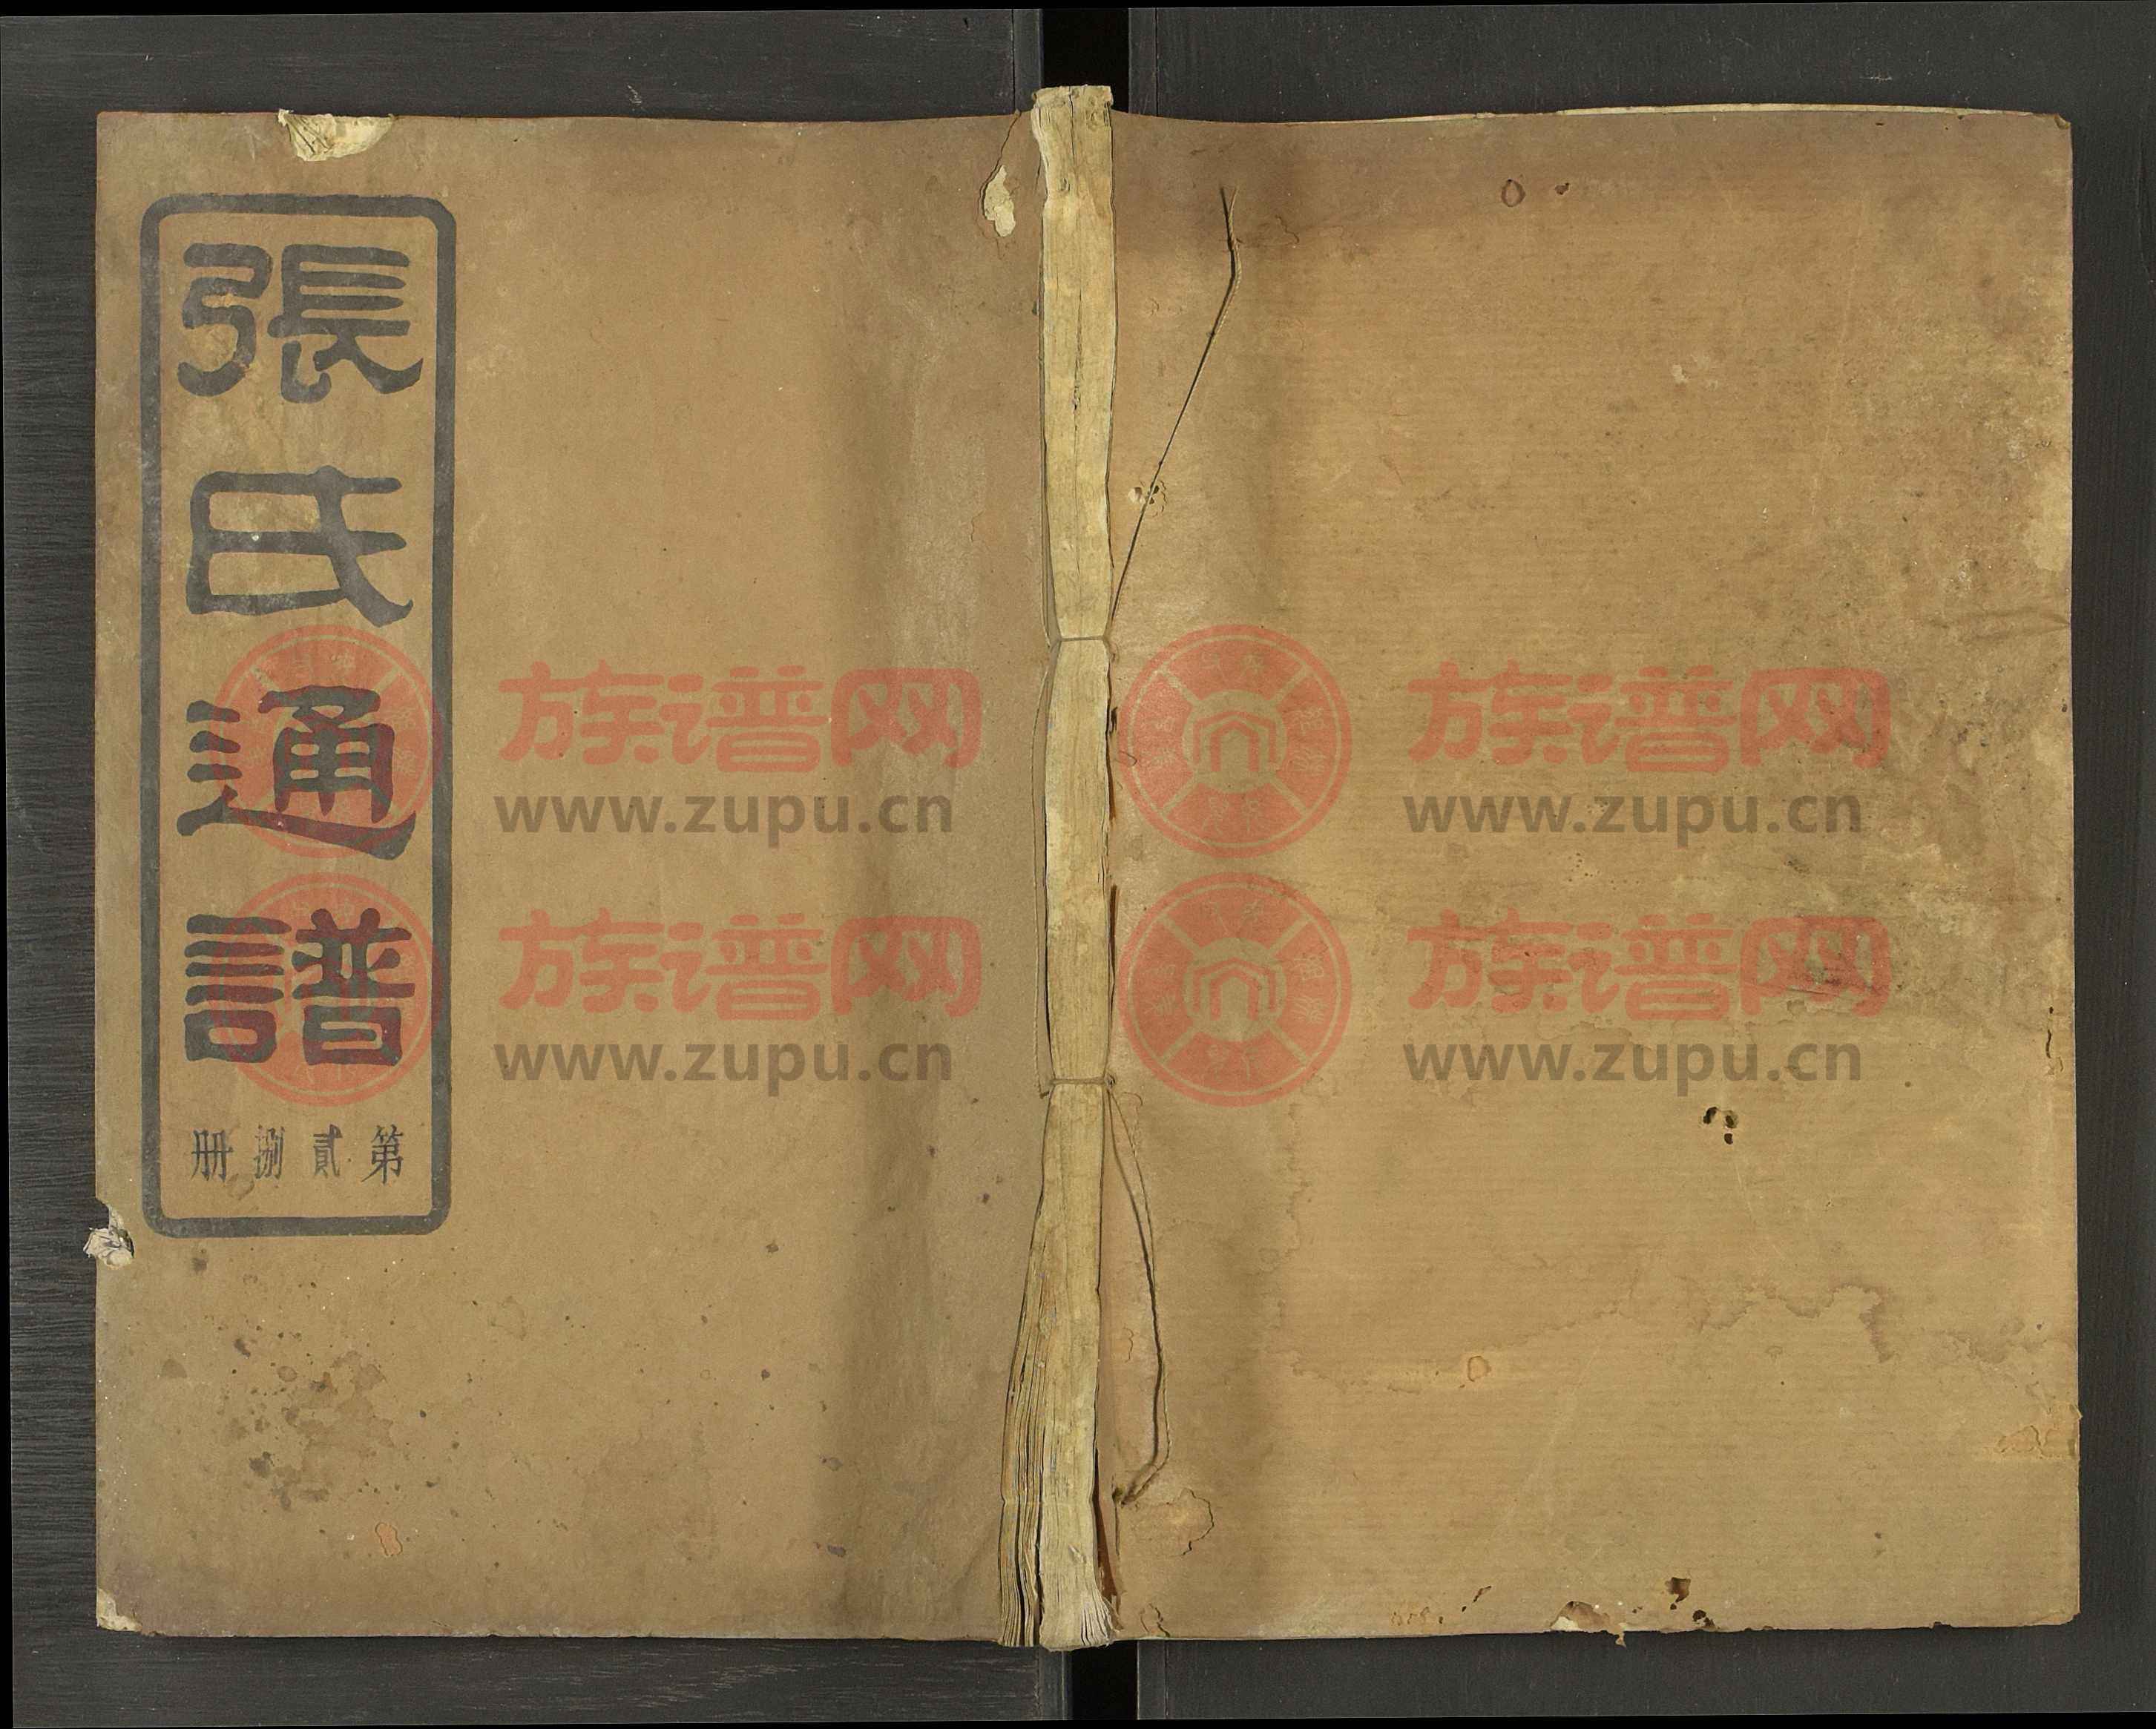 張氏通譜
第貳捌册
族谱网
www.zupu.cn
族谱网
www.zupu.cn
族谱网
www.zupu.cn
族谱网
www.zupu.cn